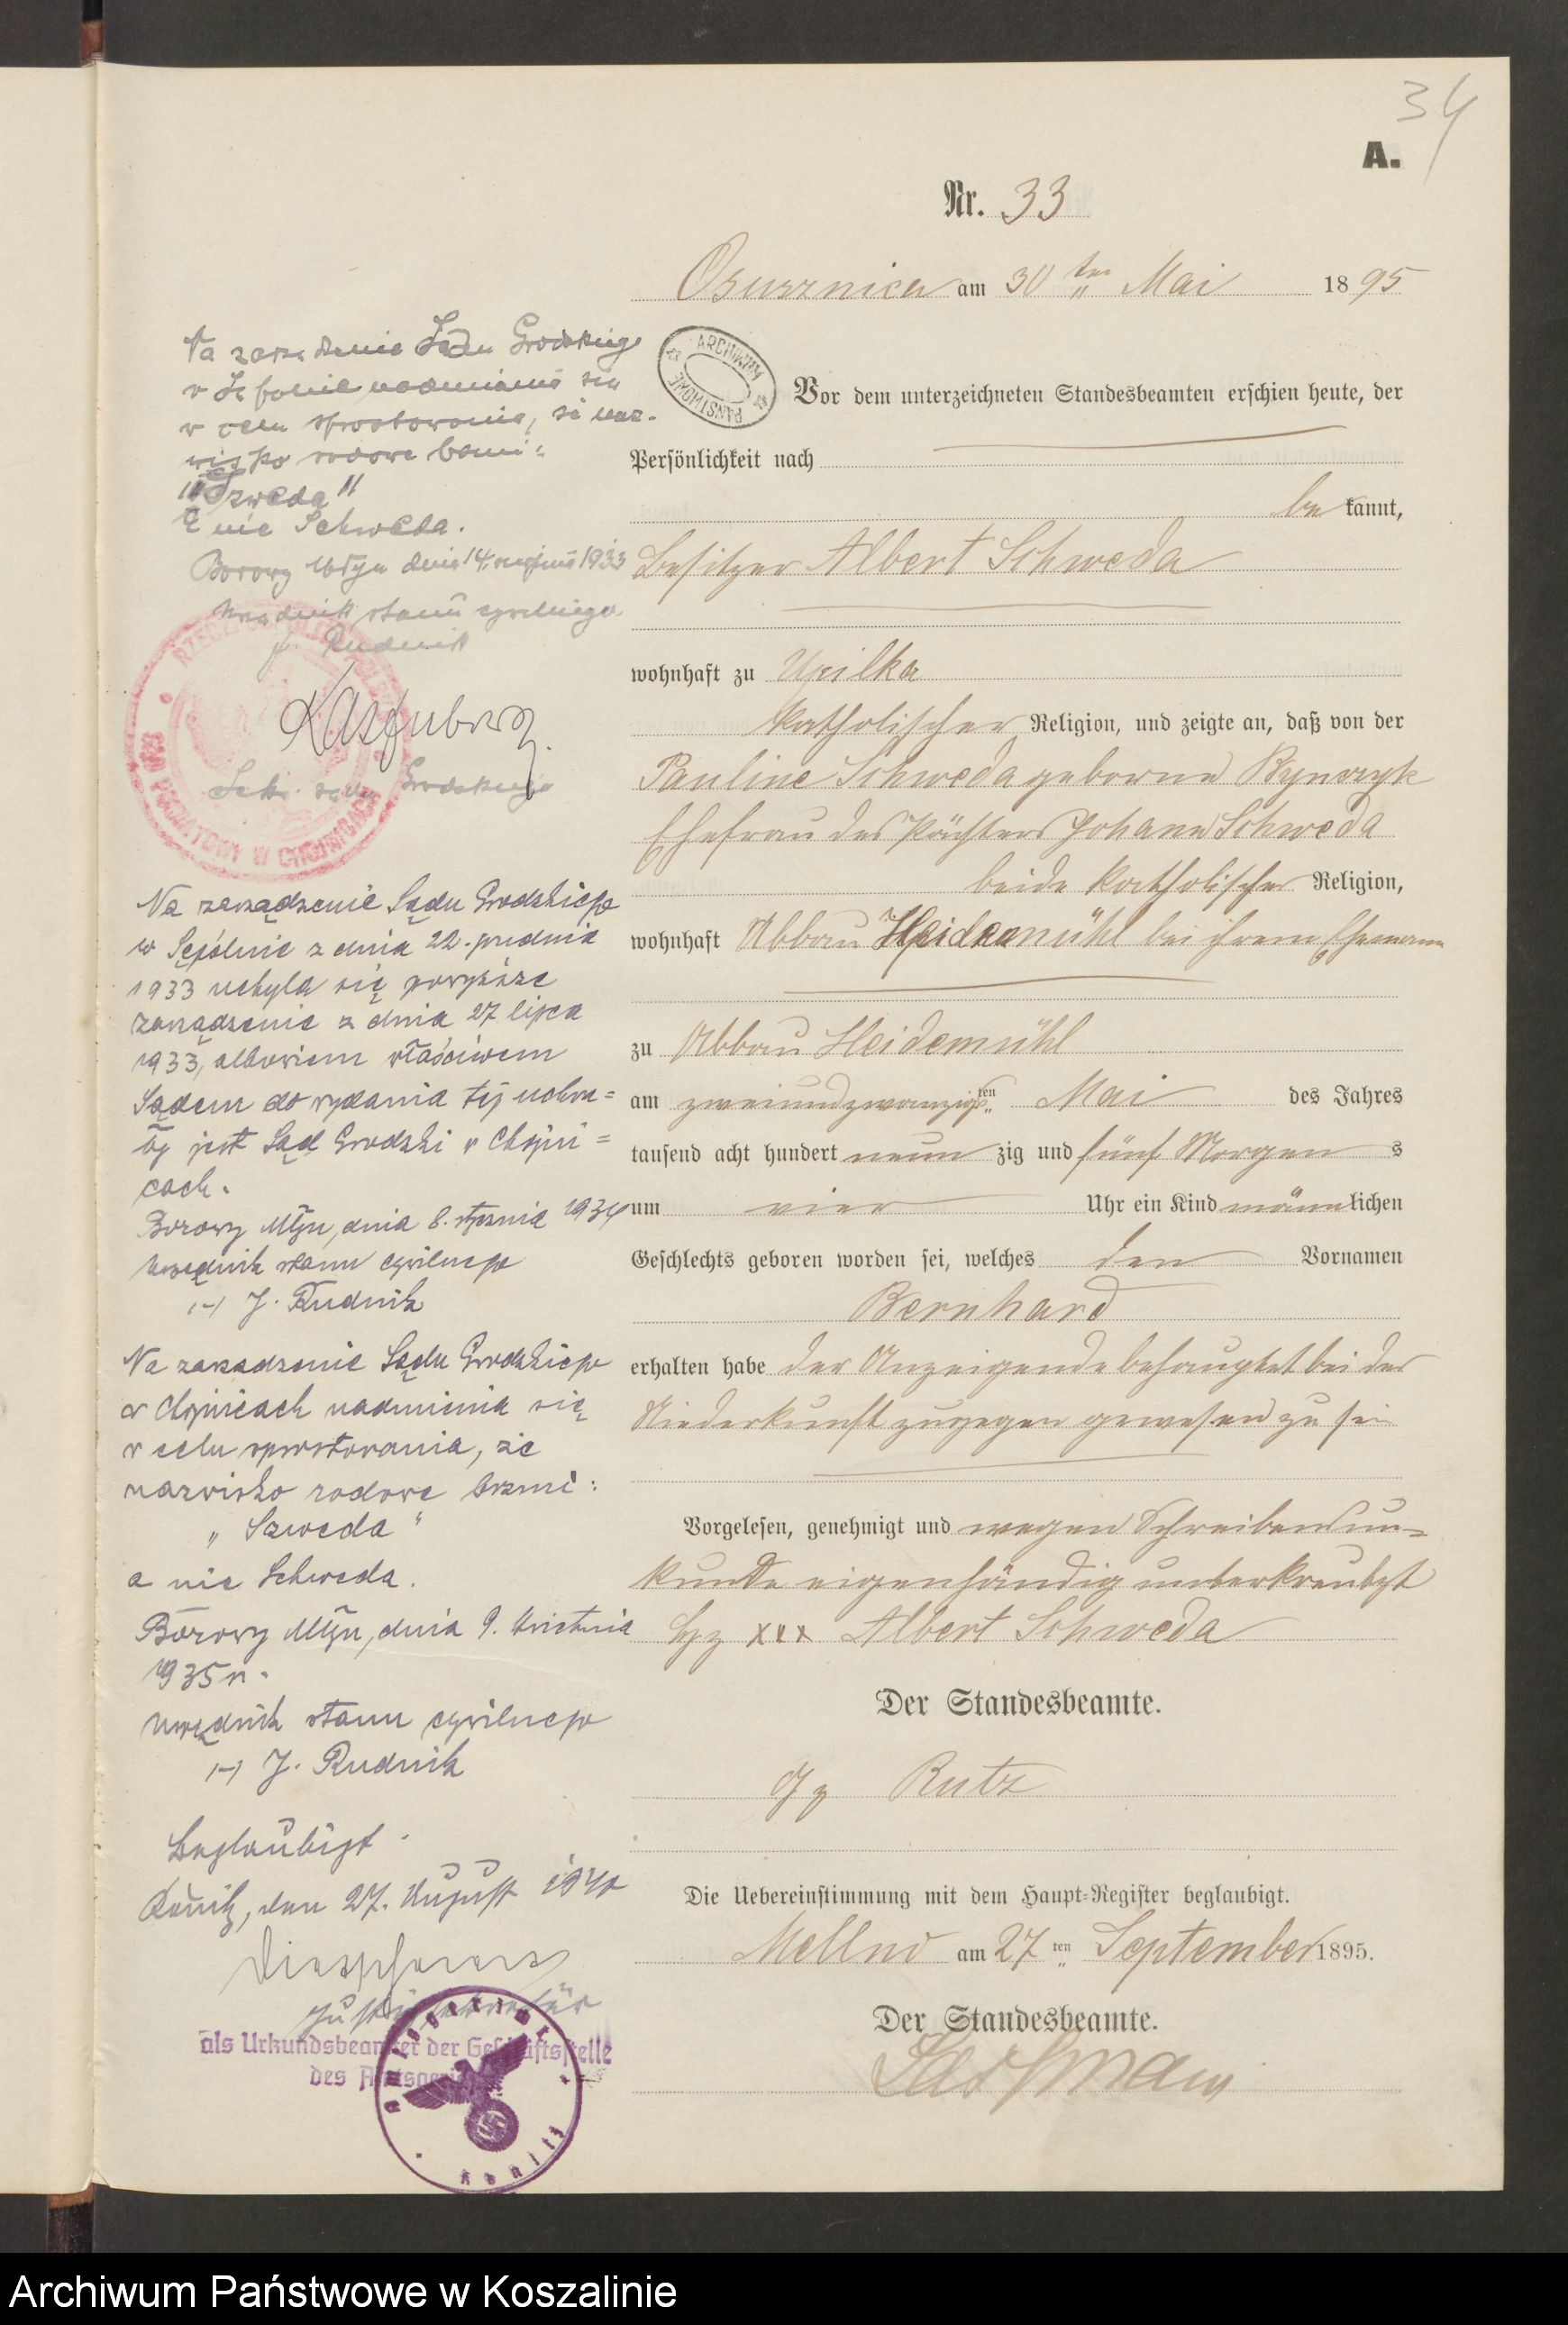 34
A.
Nr. 33
Osusznica am 30 ten Mai 1895
ARCHIWUM PAŃSTWOWE
Vor dem unterzeichneten Standesbeamten erschien heute, der
Persönlichkeit nach
be kannt,
Besitzer Albert Schweda
wohnhaft zu Upilka
katholischer Religion, und zeigte an, daß von der
Pauline Schweda geborne
Ehefrau des Pächters Johann Schweda
beide katholischer Religion,
wohnhaft Abbau Heidemühl bei ihrem Ehemann
zu Abbau Heidemühl
am zweiundzwanzigsten Mai des Jahres
tausend acht hundert neun zig und fünf Morgen s
um vier Uhr ein Kind männlichen
Geschlechts geboren worden sei, welches den Vornamen
Bernhard
erhalten habe der Anzeigende behauptet bei der
Niederkunft zugegen gewesen zu sein
Vorgelesen, genehmigt und wegen Schreibensun-
kunde eigenhändig unterkreutzt
xxx Albert Schweda
Der Standesbeamte.
gz Rutz
Die Uebereinstimmung mit dem Haupt-Register beglaubigt.
am 27 ten September 1895.
Der Standesbeamte.
Na zarządzenie Sądu Grodzkiego
w Sępolnie nadmienia się
w celu sprostowania, że naz-
wisko rodowe brzmi:
"Szweda"
a nie Schweda.
Borowy Młyn dnia 14 sierpnia 1933
Urzędnik stanu cywilnego
J. Rudnik
Sekr. sądu Grodzkiego
W CHOJNICACH
Na zarządzenie Sądu Grodzkiego
w Sępólnie z dnia 22. grudnia
1933 uchyla się powyższe
zarządzenie z dnia 27 lipca
1933, albowiem właściwem
Sądem do wydania tej uchwa=
ły jest Sąd Grodzki w Chojni=
cach.
Borowy Młyn, dnia 8. stycznia 1934
Urzędnik stanu cywilnego
/-/ J. Rudnik
Na zarządzenie Sądu Grodzkiego
w Chojnicach nadmienia się
w celu sprostowania, że
nazwisko rodowe brzmi:
"Szweda"
a nie Schweda.
Borowy Młyn, dnia 9. kwietnia
1935 r.
Urzędnik stanu cywilnego
/-/ J. Rudnik
Beglaubigt.
Konitz, den 27. August 1940
Justizsekretär
als Urkundsbeamter der Geschäftsstelle
des Amtsgerichts
Konitz
Archiwum Państwowe w Koszalinie